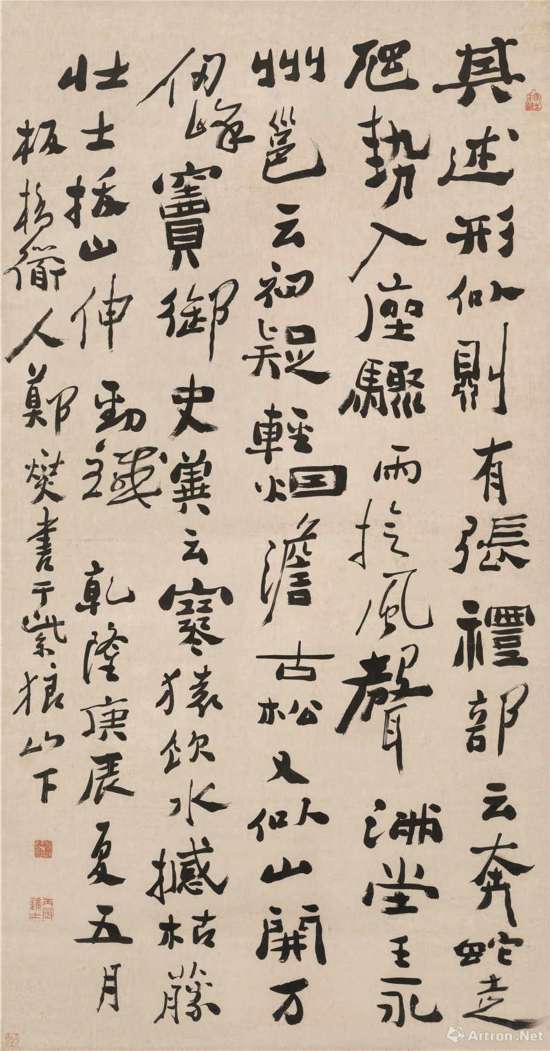 其述形似則有張禮部云奔蛇走
虺勢入座驟雨旋風聲滿堂王永
州邕云初疑輕烟澹古松又似山開万
仞峰竇御史冀云寒猿飲水撼枯藤
壯士拔山伸勁鐵 乾隆庚辰夏五月
板橋衜人鄭燮書于紫狼山下
Artron.Net